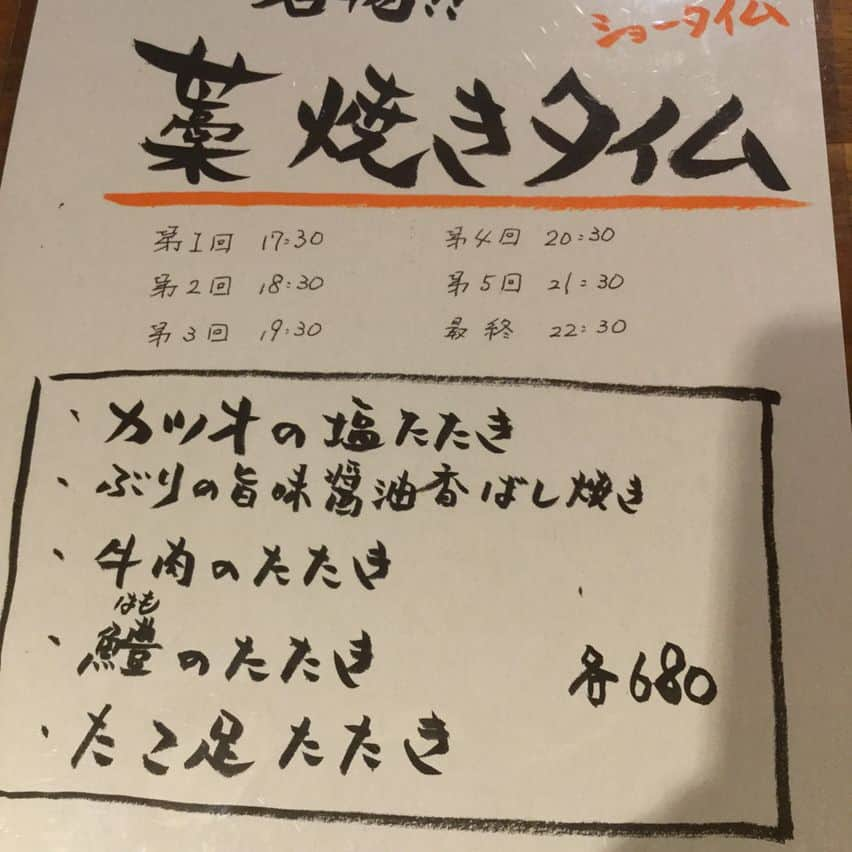 名物!!
ショータイム
藁焼きタイム
第1回 17:30
第2回 18:30
第3回 19:30
第4回 20:30
第5回 21:30
最終 22:30
・カツオの塩たたき
・ぶりの旨味醤油香ばし焼き
・牛肉のたたき
はも
・鱧のたたき
・たこ足たたき
各680